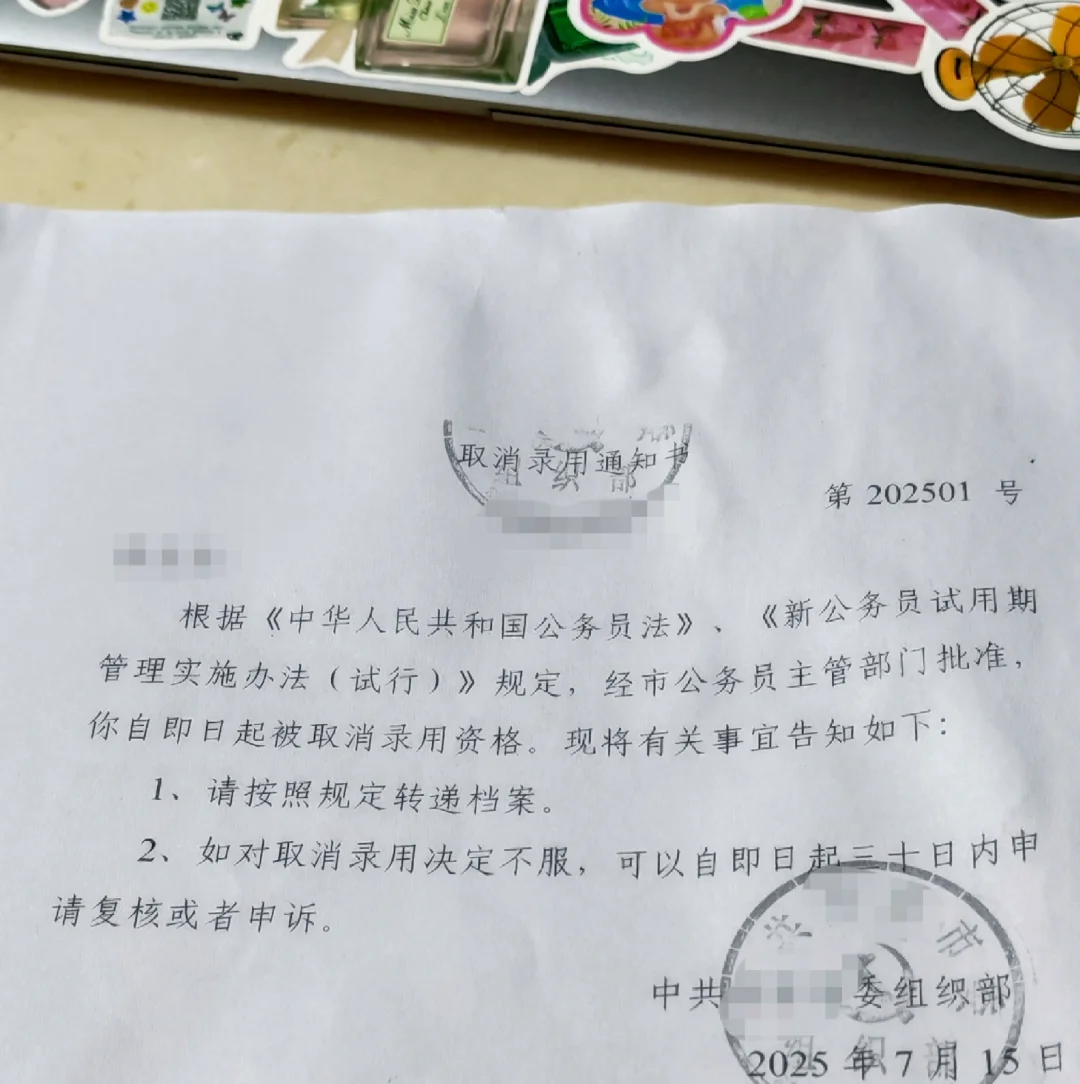 取消录用通知书
组织部
第 202501 号
根据《中华人民共和国公务员法》、《新公务员试用期
管理实施办法（试行）》规定，经市公务员主管部门批准，
你自即日起被取消录用资格。现将有关事宜告知如下：
1、请按照规定转递档案。
2、如对取消录用决定不服，可以自即日起三十日内申
请复核或者申诉。
市
中共 委组织部
组织部
2025 年 7 月 15 日